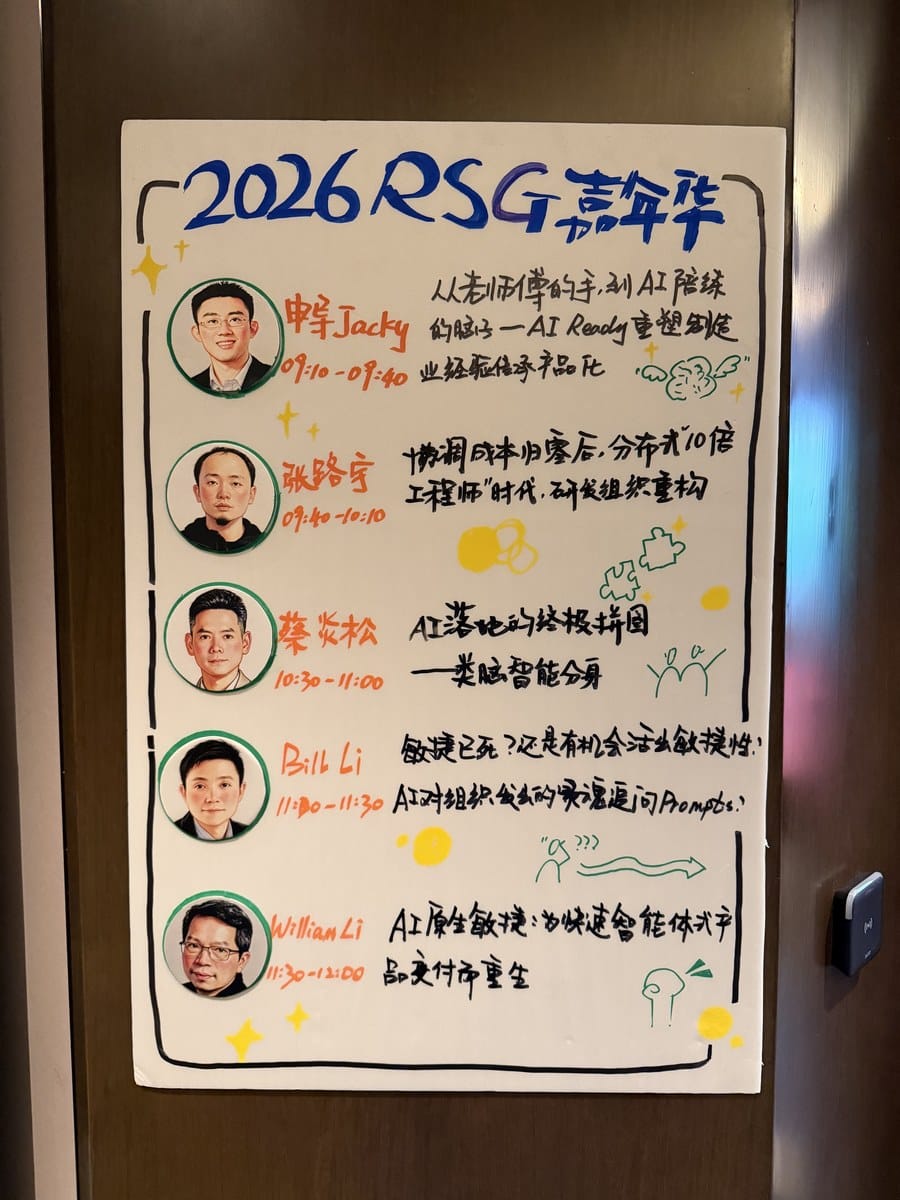 2026 RSG 嘉年华
申导Jacky
09:10-09:40
从老师傅的手,到AI陪练
的脑子—AI Ready重塑制造
业经验传承产品化
张路宇
09:40-10:10
协调成本归零后,分布式"10倍
工程师"时代,研发组织重构
蔡炎松
10:30-11:00
AI落地的终极拼图
——类脑智能分身
Bill Li
11:00-11:30
敏捷已死?还是有机会活出敏捷性?
AI对组织发出的灵魂追问Prompts?
???
William Li
11:30-12:00
AI原生敏捷:为快速智能体式产
品交付而重生